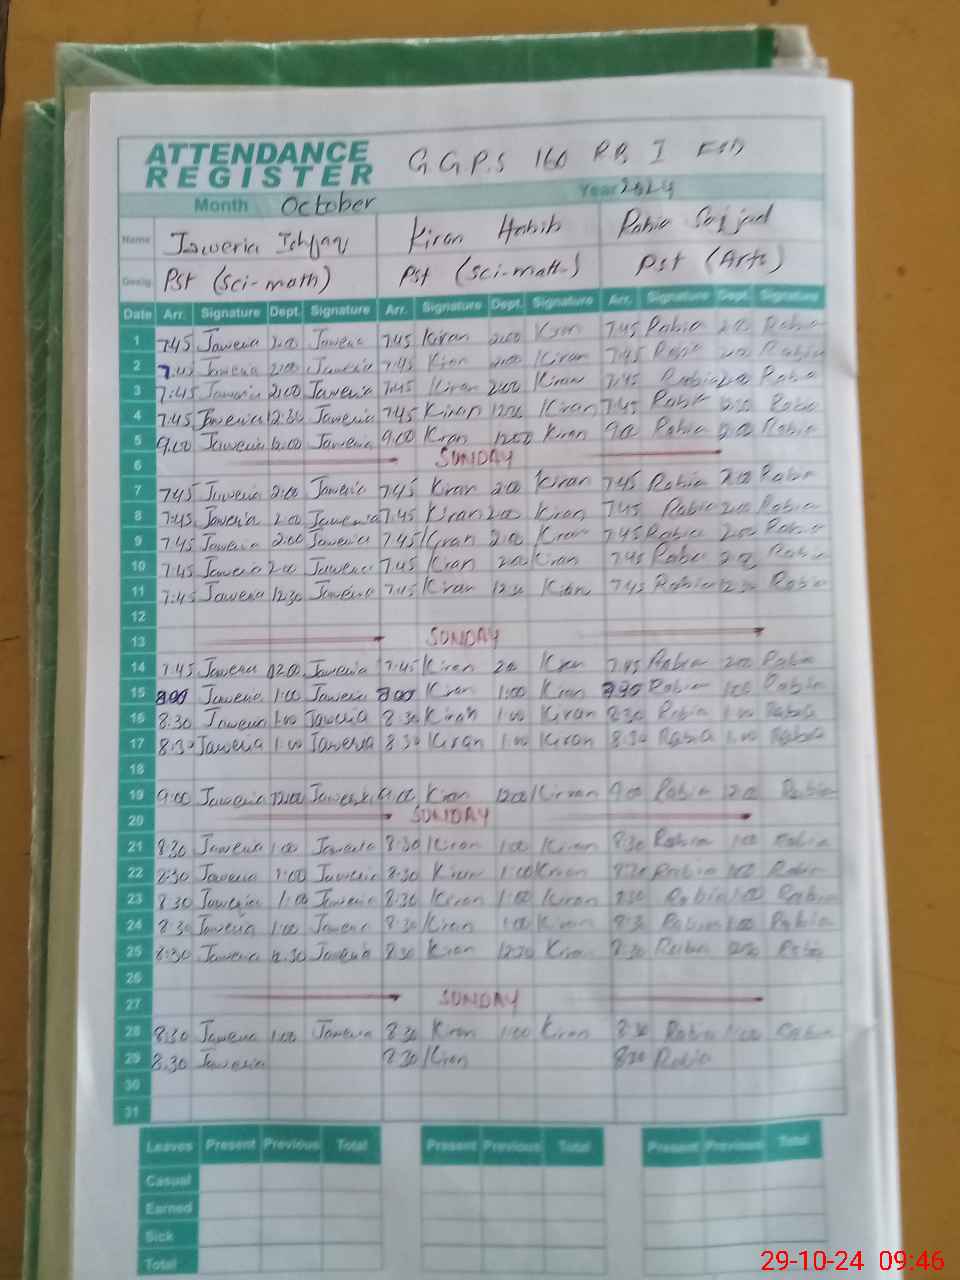 ATTENDANCE REGISTER
G G P.S 160 R.B I FSD
Month October Year 2024
Name Jaweria Ishfaq Kiran Habib Rabia Sajjad
Desig Pst (Sci-math) Pst (Sci-math) Pst (Arts)
Date Arr. Signature Dept. Signature Arr. Signature Dept. Signature Arr. Signature Dept. Signature
1 7:45 Jaweria 2:00 Jaweria 7:45 Kiran 2:00 Kiran 7:45 Rabia 2:00 Rabia
2 Jaweria 2:00 Jaweria 7:45 Kiran 2:00 Kiran 7:45 Rabia 2:00 Rabia
3 7:45 Jaweria 2:00 Jaweria 7:45 Kiran 2:00 Kiran 7:45 Rabia 2:00 Rabia
4 7:45 Jaweria 12:30 Jaweria 7:45 Kiran Kiran 7:45 Rabia Rabia
5 9:00 Jaweria Jaweria 9:00 Kiran 1200 Kiran 900 Rabia Rabia
6 SUNDAY
7 745 Jaweria 2:00 Jaweria 745 Kiran 200 Kiran 745 Rabia 200 Rabia
8 7:45 Jaweria 200 Jaweria 7:45 Kiran 200 Kiran 745 Rabia 200 Rabia
9 7:45 Jaweria 2:00 Jaweria 7:45 Kiran 200 Kiran 7:45 Rabia 200 Rabia
10 7:45 Jaweria 2:00 Jaweria 7:45 Kiran 200 Kiran 7:45 Rabia 200 Rabia
11 7:45 Jaweria 1230 Jaweria 7:45 Kiran 1230 Kiran 7:45 Rabia 1230 Rabia
12
13 SUNDAY
14 7:45 Jaweria Jaweria 7:45 Kiran 200 Kiran 7:45 Rabia 200 Rabia
15 Jaweria 1:00 Jaweria Kiran 1:00 Kiran Rabia 1:00 Rabia
16 8:30 Jaweria 1:00 Jaweria 8:30 Kiran 1:00 Kiran 830 Rabia 1:00 Rabia
17 8:30 Jaweria 1:00 Jaweria 8:30 Kiran 1:00 Kiran 8:30 Rabia 1:00 Rabia
18
19 9:00 Jaweria 12:00 Jaweria 9:00 Kiran 1200 Kiran 900 Rabia 1200 Rabia
20 SUNDAY
21 8:30 Jaweria 1:00 Jaweria 8:30 Kiran 1:00 Kiran 8:30 Rabia 1:00 Rabia
22 8:30 Jaweria 1:00 Jaweria 8:30 Kiran 1:00 Kiran 8:30 Rabia 1:00 Rabia
23 8:30 Jaweria 1:00 Jaweria 8:30 Kiran 1:00 Kiran 830 Rabia 1:00 Rabia
24 8:30 Jaweria 1:00 Jaweria 8:30 Kiran 1:00 Kiran 8:30 Rabia 1:00 Rabia
25 8:30 Jaweria 12.30 Jaweria 8:30 Kiran 1230 Kiran 8:30 Rabia Rabia
26
27 SUNDAY
28 8:30 Jaweria 1:00 Jaweria 8:30 Kiran 1:00 Kiran 830 Rabia 1:00 Rabia
29 8.30 Jaweria 8:30 Kiran 830 Rabia
30
31
Leaves Present Previous Total Present Previous Total Present Previous Total
Casual
Earned
Sick
Total
29-10-24 09:46